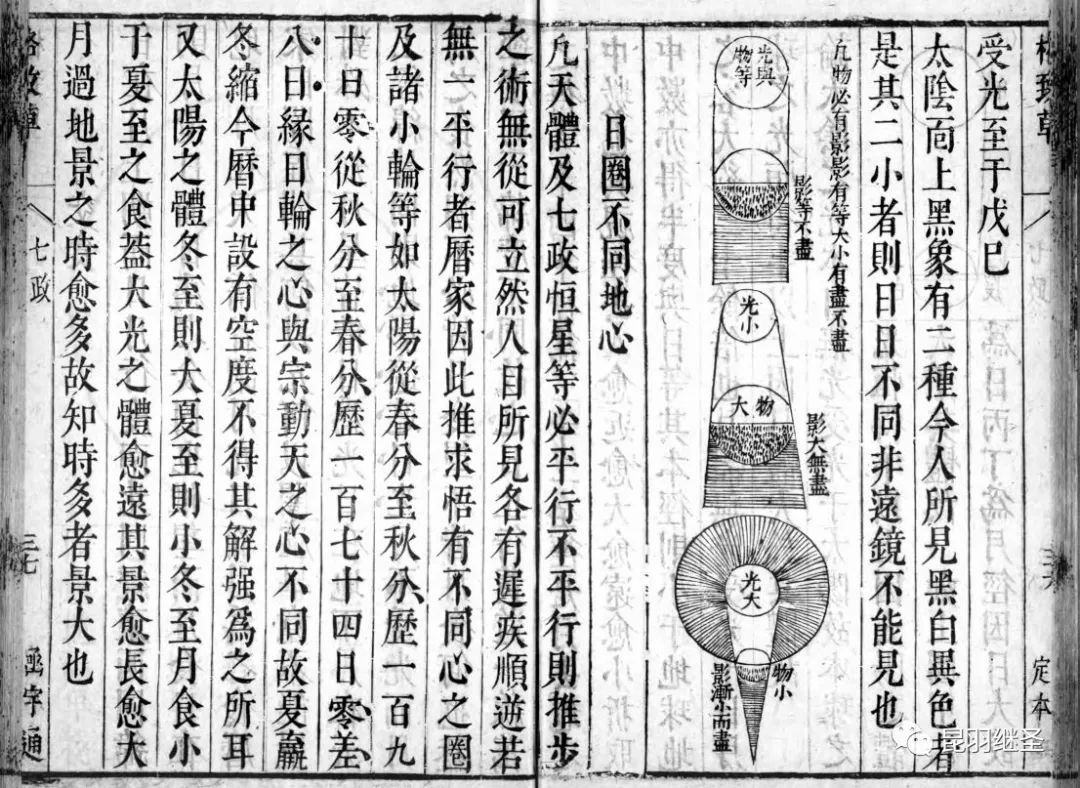 格致草
定本
受光至于戊巳
太陰面上黑象有二種今人所見黑白異色者
是其二小者則日日不同非遠鏡不能見也
凢物必有影影有等大小有盡不盡
光與物等
影等不盡
光小
物大
影大無盡
光大
物小
影漸小而盡
日圈不同地心
凢天體及七政恒星等必平行不平行則推步
之術無從可立然人目所見各有遲疾順逆若
無一平行者曆家因此推求悟有不同心之圈
及諸小輪等如太陽從春分至秋分、歷一百九
十日零從秋分至春分、歷一百七十四日零、差、
八日緣日輪之心與宗動天之心不同故夏贏
冬縮今曆中設有空度不得其解强爲之所耳
又太陽之體冬至則大夏至則小冬至月食小
于夏至之食葢大光之體愈遠其景愈長愈大
月過地景之時愈多故知時多者景大也
格致草
七政
三七
函宇通
昆羽继圣